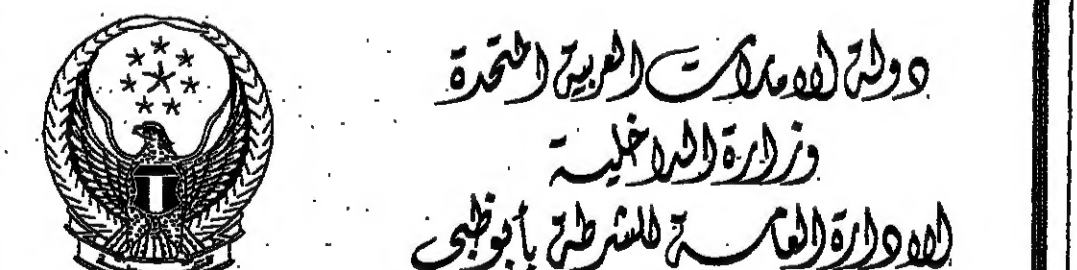 دولة الامارات العربية المتحدة
وزارة الداخلية
الادارة العامة للشرطة بأبوظبي